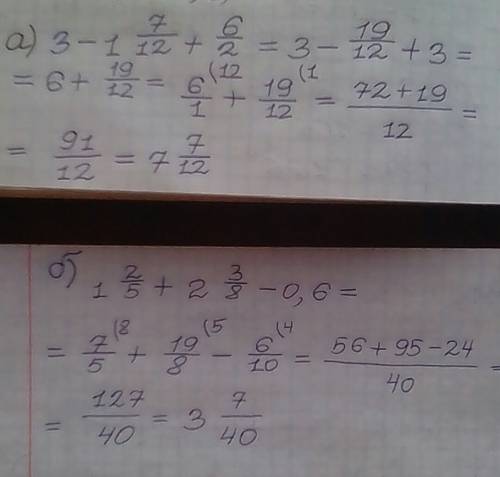 а) 3 - 1 7/12 + 6/2 = 3 - 19/12 + 3 =
= 6 + 19/12 = 6/1 (12 + 19/12 (1 = 72 + 19/12 =
= 91/12 = 7 7/12
б) 1 2/5 + 2 3/8 - 0,6 =
= 7/5 (8 + 19/8 (5 - 6/10 (4 = 56 + 95 - 24/40 =
= 127/40 = 3 7/40